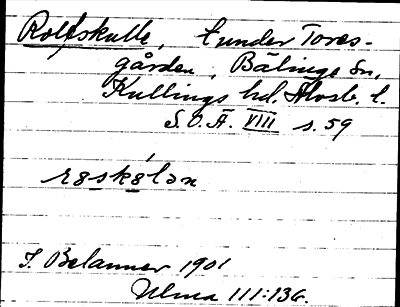 Rolfskulle, t under Tores-
gården, Bälinge sn,
Kullings hd. Älvsb. l.
S.O.Ä. VIII s. 59
I. Belanner 1901
Ulma 111:136.